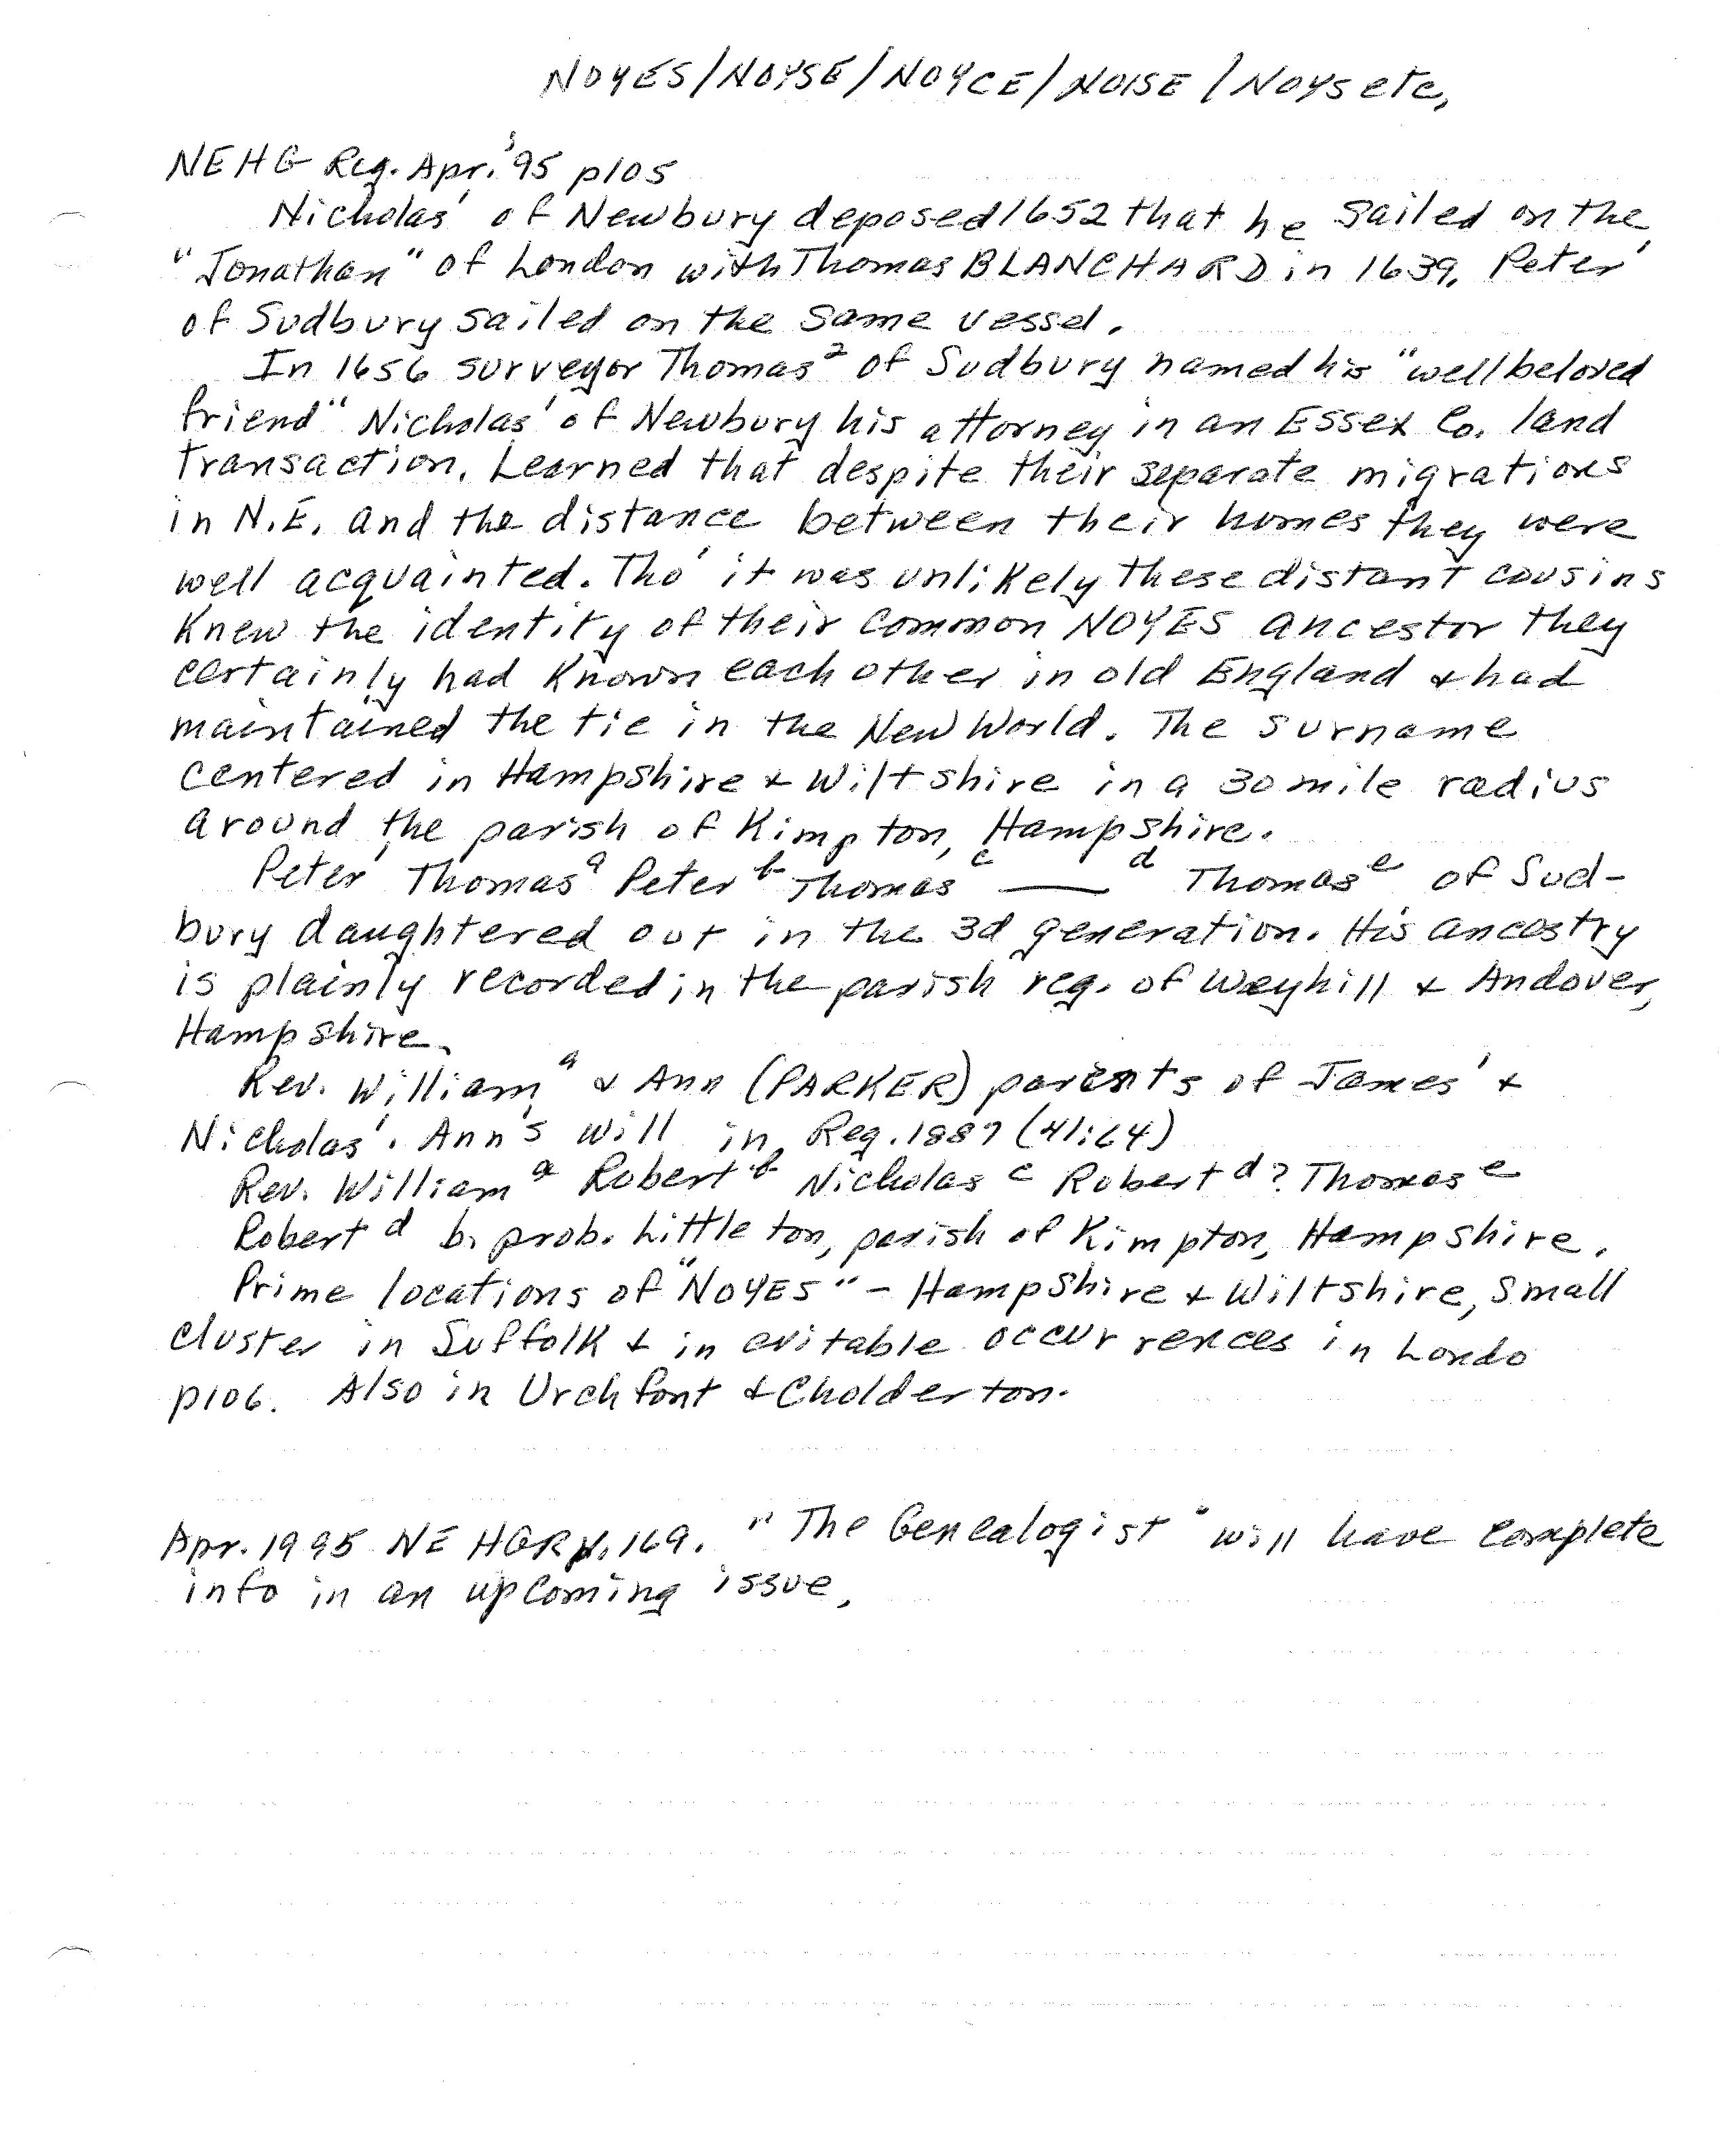 NOYES/NOYSE/NOYCE/NOISE/NOYS etc,
NEHG Reg. Apr. '95 p105
Nicholas¹ of Newbury deposed 1652 that he sailed on the
"Jonathan" of London with Thomas BLANCHARD in 1639. Peter¹
of Sudbury sailed on the same vessel.
In 1656 surveyor Thomas² of Sudbury named his "well beloved
friend" Nicholas¹ of Newbury his attorney in an Essex Co. land
transaction. Learned that despite their separate migrations
in N.E. and the distance between their homes they were
well acquainted. Tho' it was unlikely these distant cousins
knew the identity of their common NOYES ancestor they
certainly had known each other in old England & had
maintained the tie in the New World. The surname
centered in Hampshire & Wiltshire in a 30 mile radius
around the parish of Kimpton, Hampshire.
Peter¹ Thomasᵃ Peterᵇ Thomasᶜ ——ᵈ Thomasᵉ of Sud-
bury daughtered out in the 3d generation. His ancestry
is plainly recorded in the parish reg. of Weyhill & Andover,
Hampshire.
Rev. Williamᵃ & Ann (PARKER) parents of James¹ &
Nicholas¹. Ann's will in Reg. 1887 (41:64)
Rev. Williamᵃ Robertᵇ Nicholasᶜ Robertᵈ? Thomasᵉ
Robertᵈ b. prob. Littleton, parish of Kimpton, Hampshire.
Prime locations of "NOYES" - Hampshire & Wiltshire, small
cluster in Suffolk & inevitable occurrences in Londo
p106. Also in Urchfont & Cholderton.
Apr. 1995 NEHGR p. 169. "The Genealogist" will have complete
info in an upcoming issue.